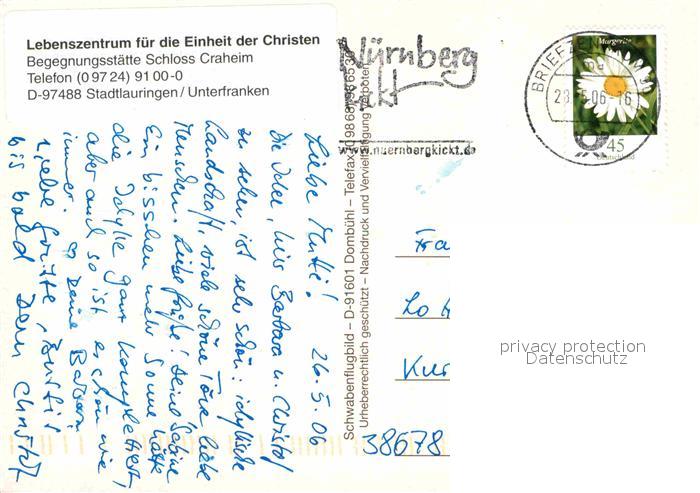 Lebenszentrum für die Einheit der Christen
Begegnungsstätte Schloss Craheim
Telefon (0 97 24) 91 00-0
D-97488 Stadtlauringen / Unterfranken
Nürnberg
kickt
www.nuernbergkickt.de
BRIEFZE
28.5.06-16
Margerite
45
Deutschland
Schwabenflugbild – D-91601 Dombühl – Telefax 09868/98 65 30
Urheberrechtlich geschützt – Nachdruck und Vervielfältigung verboten
Liebe Mutti! 26.5.06
Die Idee, hier Barbara u. Christof
zu sehen, ist sehr schön: idyllische
Landschaft, viele schöne Töne, liebe
Menschen. Liebe Grüße! Deine Sabine
Ein bisschen mehr Sonne hätte
die Idylle ganz komplettiert,
aber auch so ist es schön wie
immer. Deine Barbara
Liebe Grüße,
bis bald Dein Christof
Fra
Lo
Kur
38678
privacy protection
Datenschutz